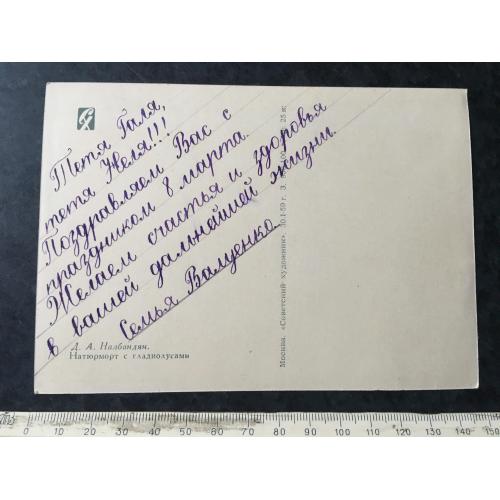 Тетя Галя,
тетя Неля!!!
Поздравляем Вас с
праздником 8 марта.
Желаем счастья и здоровья
в вашей дальнейшей жизни.
Семья Валуенко.
Д. А. Налбандян.
Натюрморт с гладиолусами
Москва. «Советский художник». 30.1-59 г. З.
25 к.
0 10 20 30 40 50 60 70 80 90 100 110 120 130 140 150